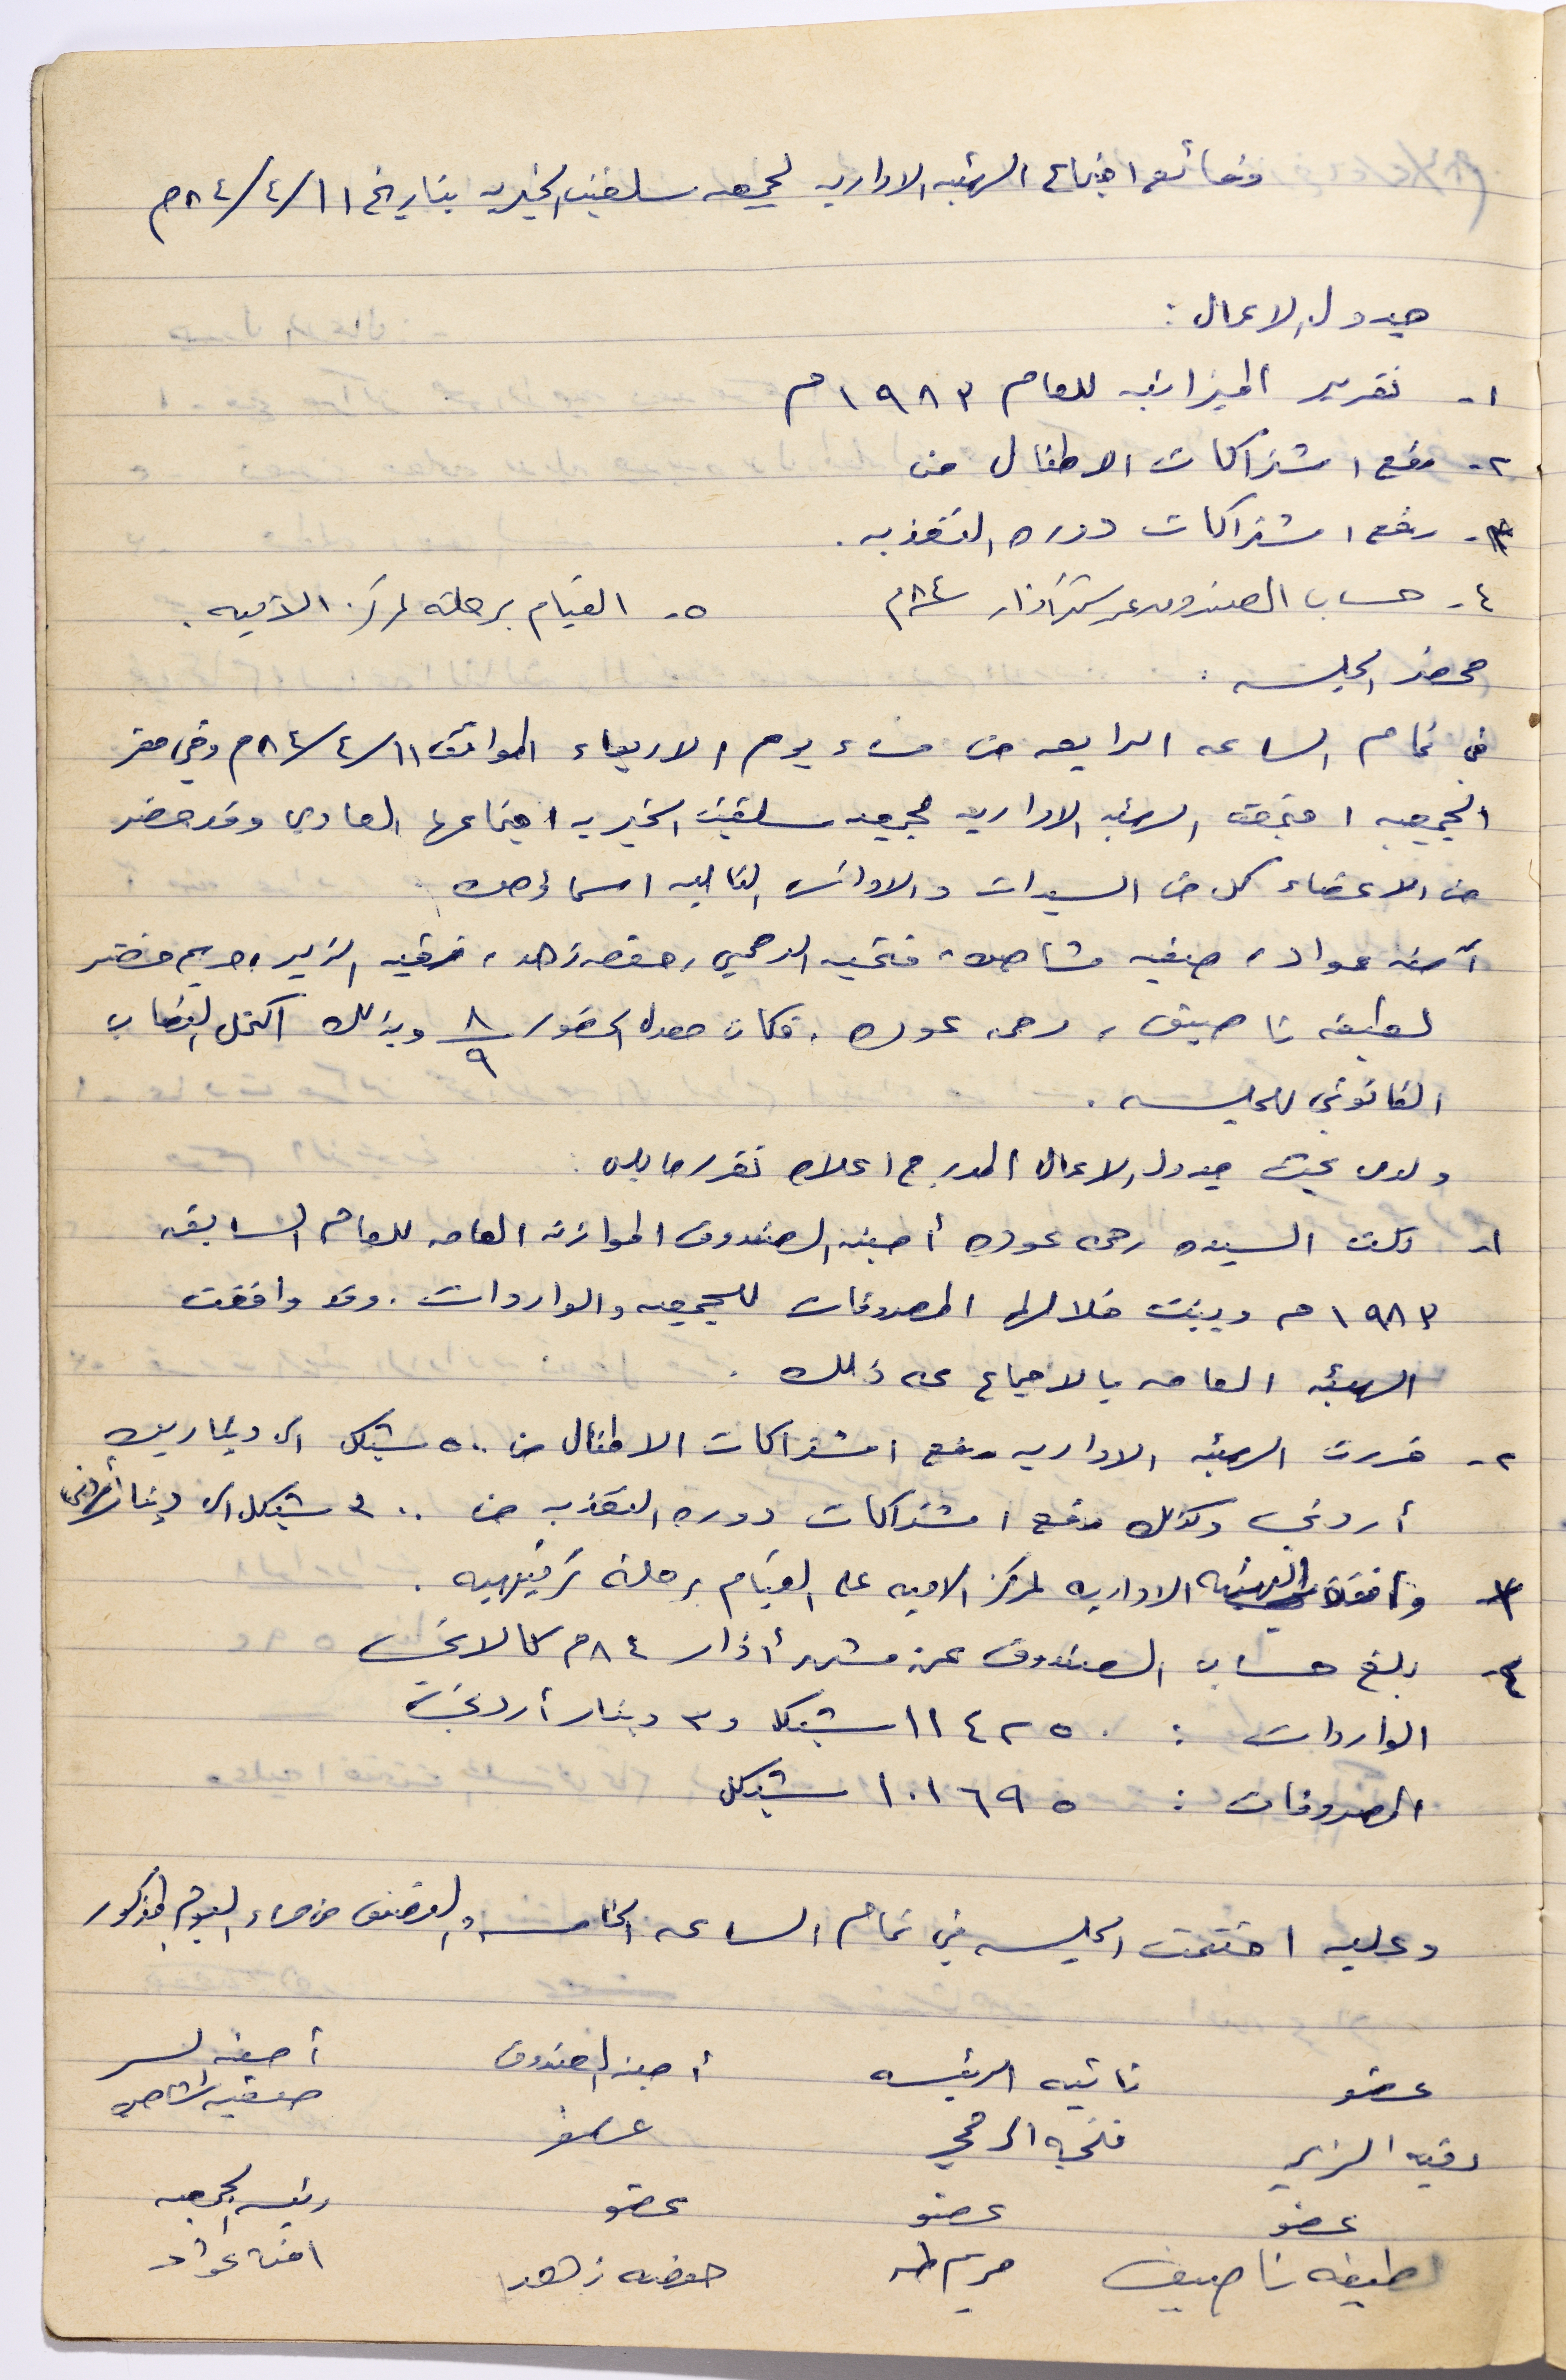 وقائع اجتماع الهيئه الاداريه لجمعيه سلفيت الخيريه بتاريخ ١١/٤/٨٤م
جدول الاعمال :
١- تقرير الميزانيه للعام ١٩٨٣م
٢- رفع اشتراكات الاطفال من
٣- رفع اشتراكات دوره التغذيه .
٤- حساب الصندوق عن شهر اذار ٨٤م
٥- القيام برحله لمركز الاميه .
محضر الجلسه :
في تمام الساعه الرابعه من مساء يوم الاربعاء الموافق ١١/٤/٨٤م وفي مقر
الجمعيه اجتمعت الهيئه الاداريه لجمعيه سلفيت الخيريه اجتماعها العادي وقد حضر
من الاعضاء كل من السيدات والاوانس التاليه اسماؤهن
آمنه عواد ، صفيه شاهين ، فتحيه الدحمي ، حفصه زهد ، رقيه الزير ، مريم خضر
لطيفه ناصيف ، رحمه عوده . فكان معدل الحضور ٨/٩ وبذلك اكتمل النصاب
القانوني للجلسه .
ولدى بحث جدول الاعمال المدرج اعلاه تقرر ما يلي :
١- تلت السيده رحمه عوده أمينه الصندوق الموازنه العامه للعام السابق
١٩٨٣م وبينت خلالها المصروفات للجمعيه والواردات . وقد وافقت
الهيئه العامه بالاجماع على ذلك .
٢- قررت الهيئه الاداريه رفع اشتراكات الاطفال من ٥٠٠ شيكل الى دينارين
أردني وكذلك رفع اشتراكات دوره التغذيه من ٣٠٠ شيكل الى دينار أردني
٣- وافقت الهيئه الاداريه لمركز الاميه على القيام برحله ترفيهيه .
٤- بلغ حساب الصندوق عن شهر أذار ٨٤م كالاتي
الواردات : ١١٤٢٥٠ شيكلا و٣ دينار أردني
المصروفات : ١٠١٦٩٥ شيكل
وعليه اختتمت الجلسه في تمام الساعه الخامسه والنصف من مساء اليوم المذكور
عضو نائبه الرئيسه أمينه الصندوق أمينه السر
رقيه الزير فتحيه الدحمي صفيه شاهين
عضو عضو عضو رئيسه الجمعيه
لطيفه ناصيف مريم طه حفصه زهد امنه عواد